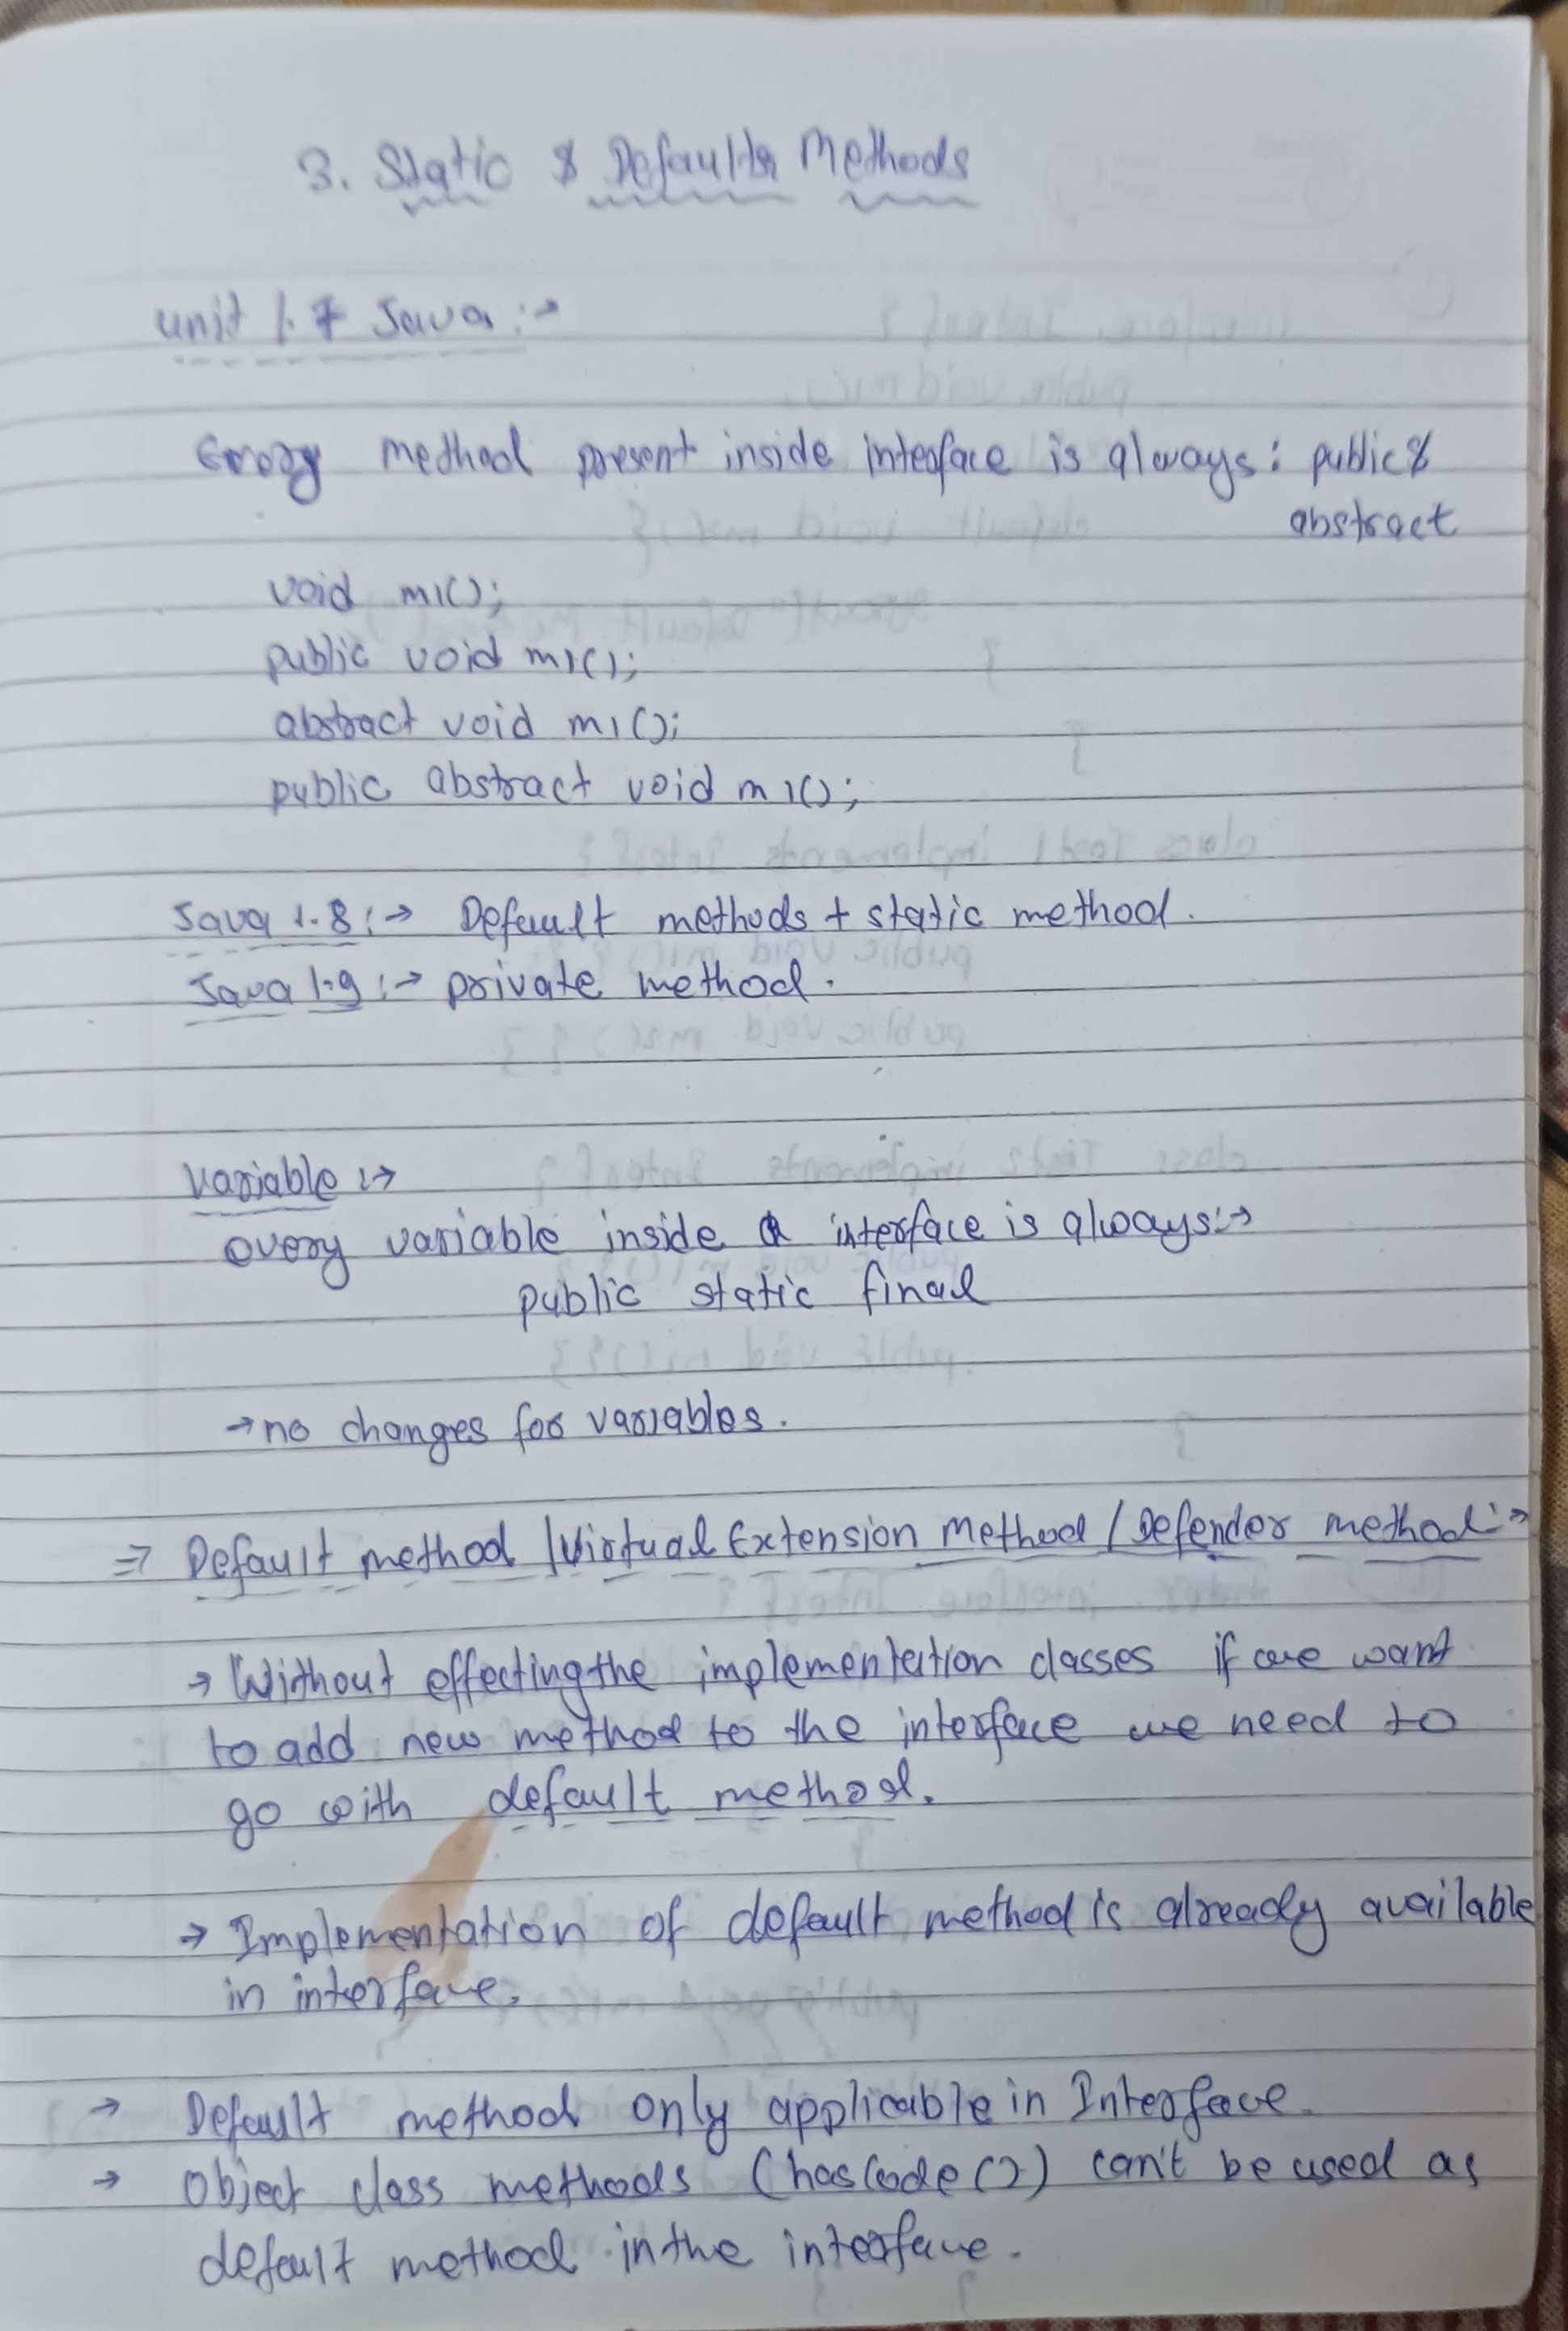 3. Static & Default Methods
unit 1.7 Java :→
Every method present inside interface is always : public &
abstract
void m1();
public void m1();
abstract void m1();
public abstract void m1();
Java 1.8 :→ Default methods + static method.
Java 1.9 :→ private method.
Variable :→
every variable inside a interface is always :→
public static final
→ no changes for variables.
⇒ Default method / Virtual Extension Method / Defender method :→
→ Without effecting the implementation classes if we want
to add new method to the interface we need to
go with default method.
→ Implementation of default method is already available
in interface.
→ Default method only applicable in Interface.
→ Object class methods (hasCode()) can't be used as
default method in the interface.